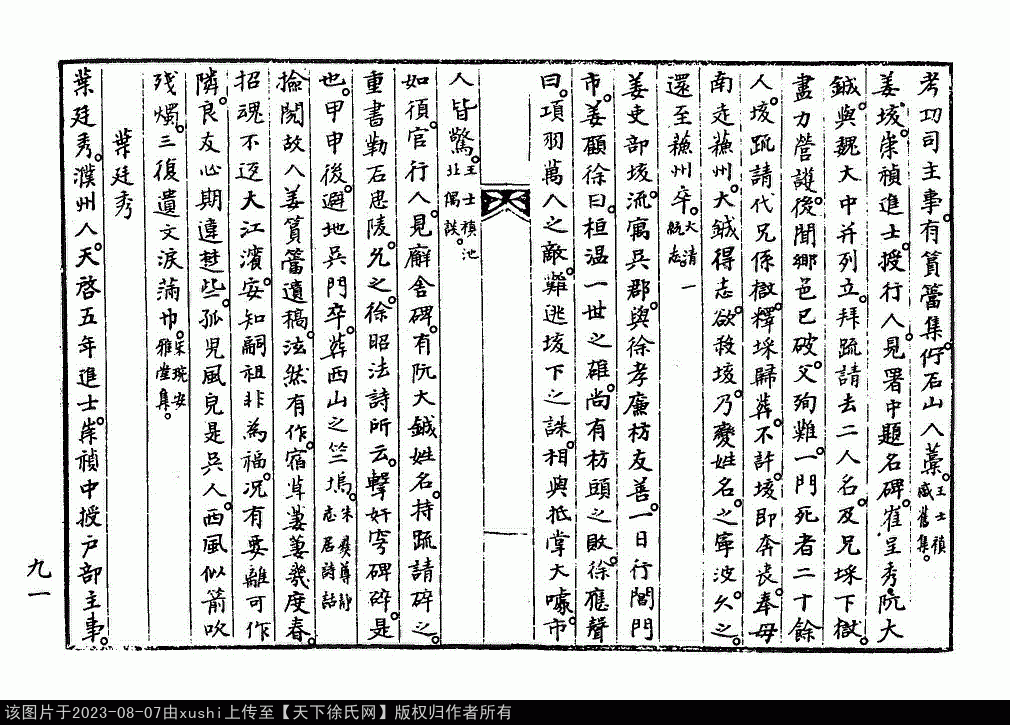 考功司主事。有篔簹集。佇石山人藁。王士禎感舊集。
姜埰。崇禎進士。授行人。見署中題名碑。崔呈秀。阮大
鋮。與魏大中并列。立拜疏請去二人名。及兄埰下獄。
盡力營護。後聞鄉邑已破。父殉難。一門死者二十餘
人。垓疏請代兄係獄。釋埰歸葬。不許。垓即奔喪。奉母
南走蘇州。大鋮得志。欲殺垓。乃變姓名。之寧波。久之。
還至蘇州卒。大清一統志。
姜吏部垓。流寓吳郡。與徐孝廉枋友善。一日行閶門
市。姜顧徐曰。桓温一世之雄。尚有枋頭之敗。徐應聲
曰。項羽萬人之敵。難逃垓下之誅。相與抵掌大噱。市
人皆驚。王士禎池北偶談。
如須官行人。見廨舍碑。有阮大鋮姓名。持疏請碎之。
重書勒石。思陵允之。徐昭法詩所云。擊奸穹碑碎。是
也。甲申後。避地吳門卒。葬西山之竺塢。朱彝尊靜志居詩話
撿閱故人姜篔簹遺稿。泫然有作。宿草萋萋幾度春。
招魂不返大江濱。安知嗣祖非為福。况有要離可作
隣。良友心期違楚些。孤兒風皃是吳人。西風似箭吹
殘燭。三復遺文淚滿巾。宋琬安雅堂集。
葉廷秀
葉廷秀。濮州人。天啓五年進士。崇禎中授戶部主事。
九一
该图片于2023-08-07由xushi上传至【天下徐氏网】版权归作者所有